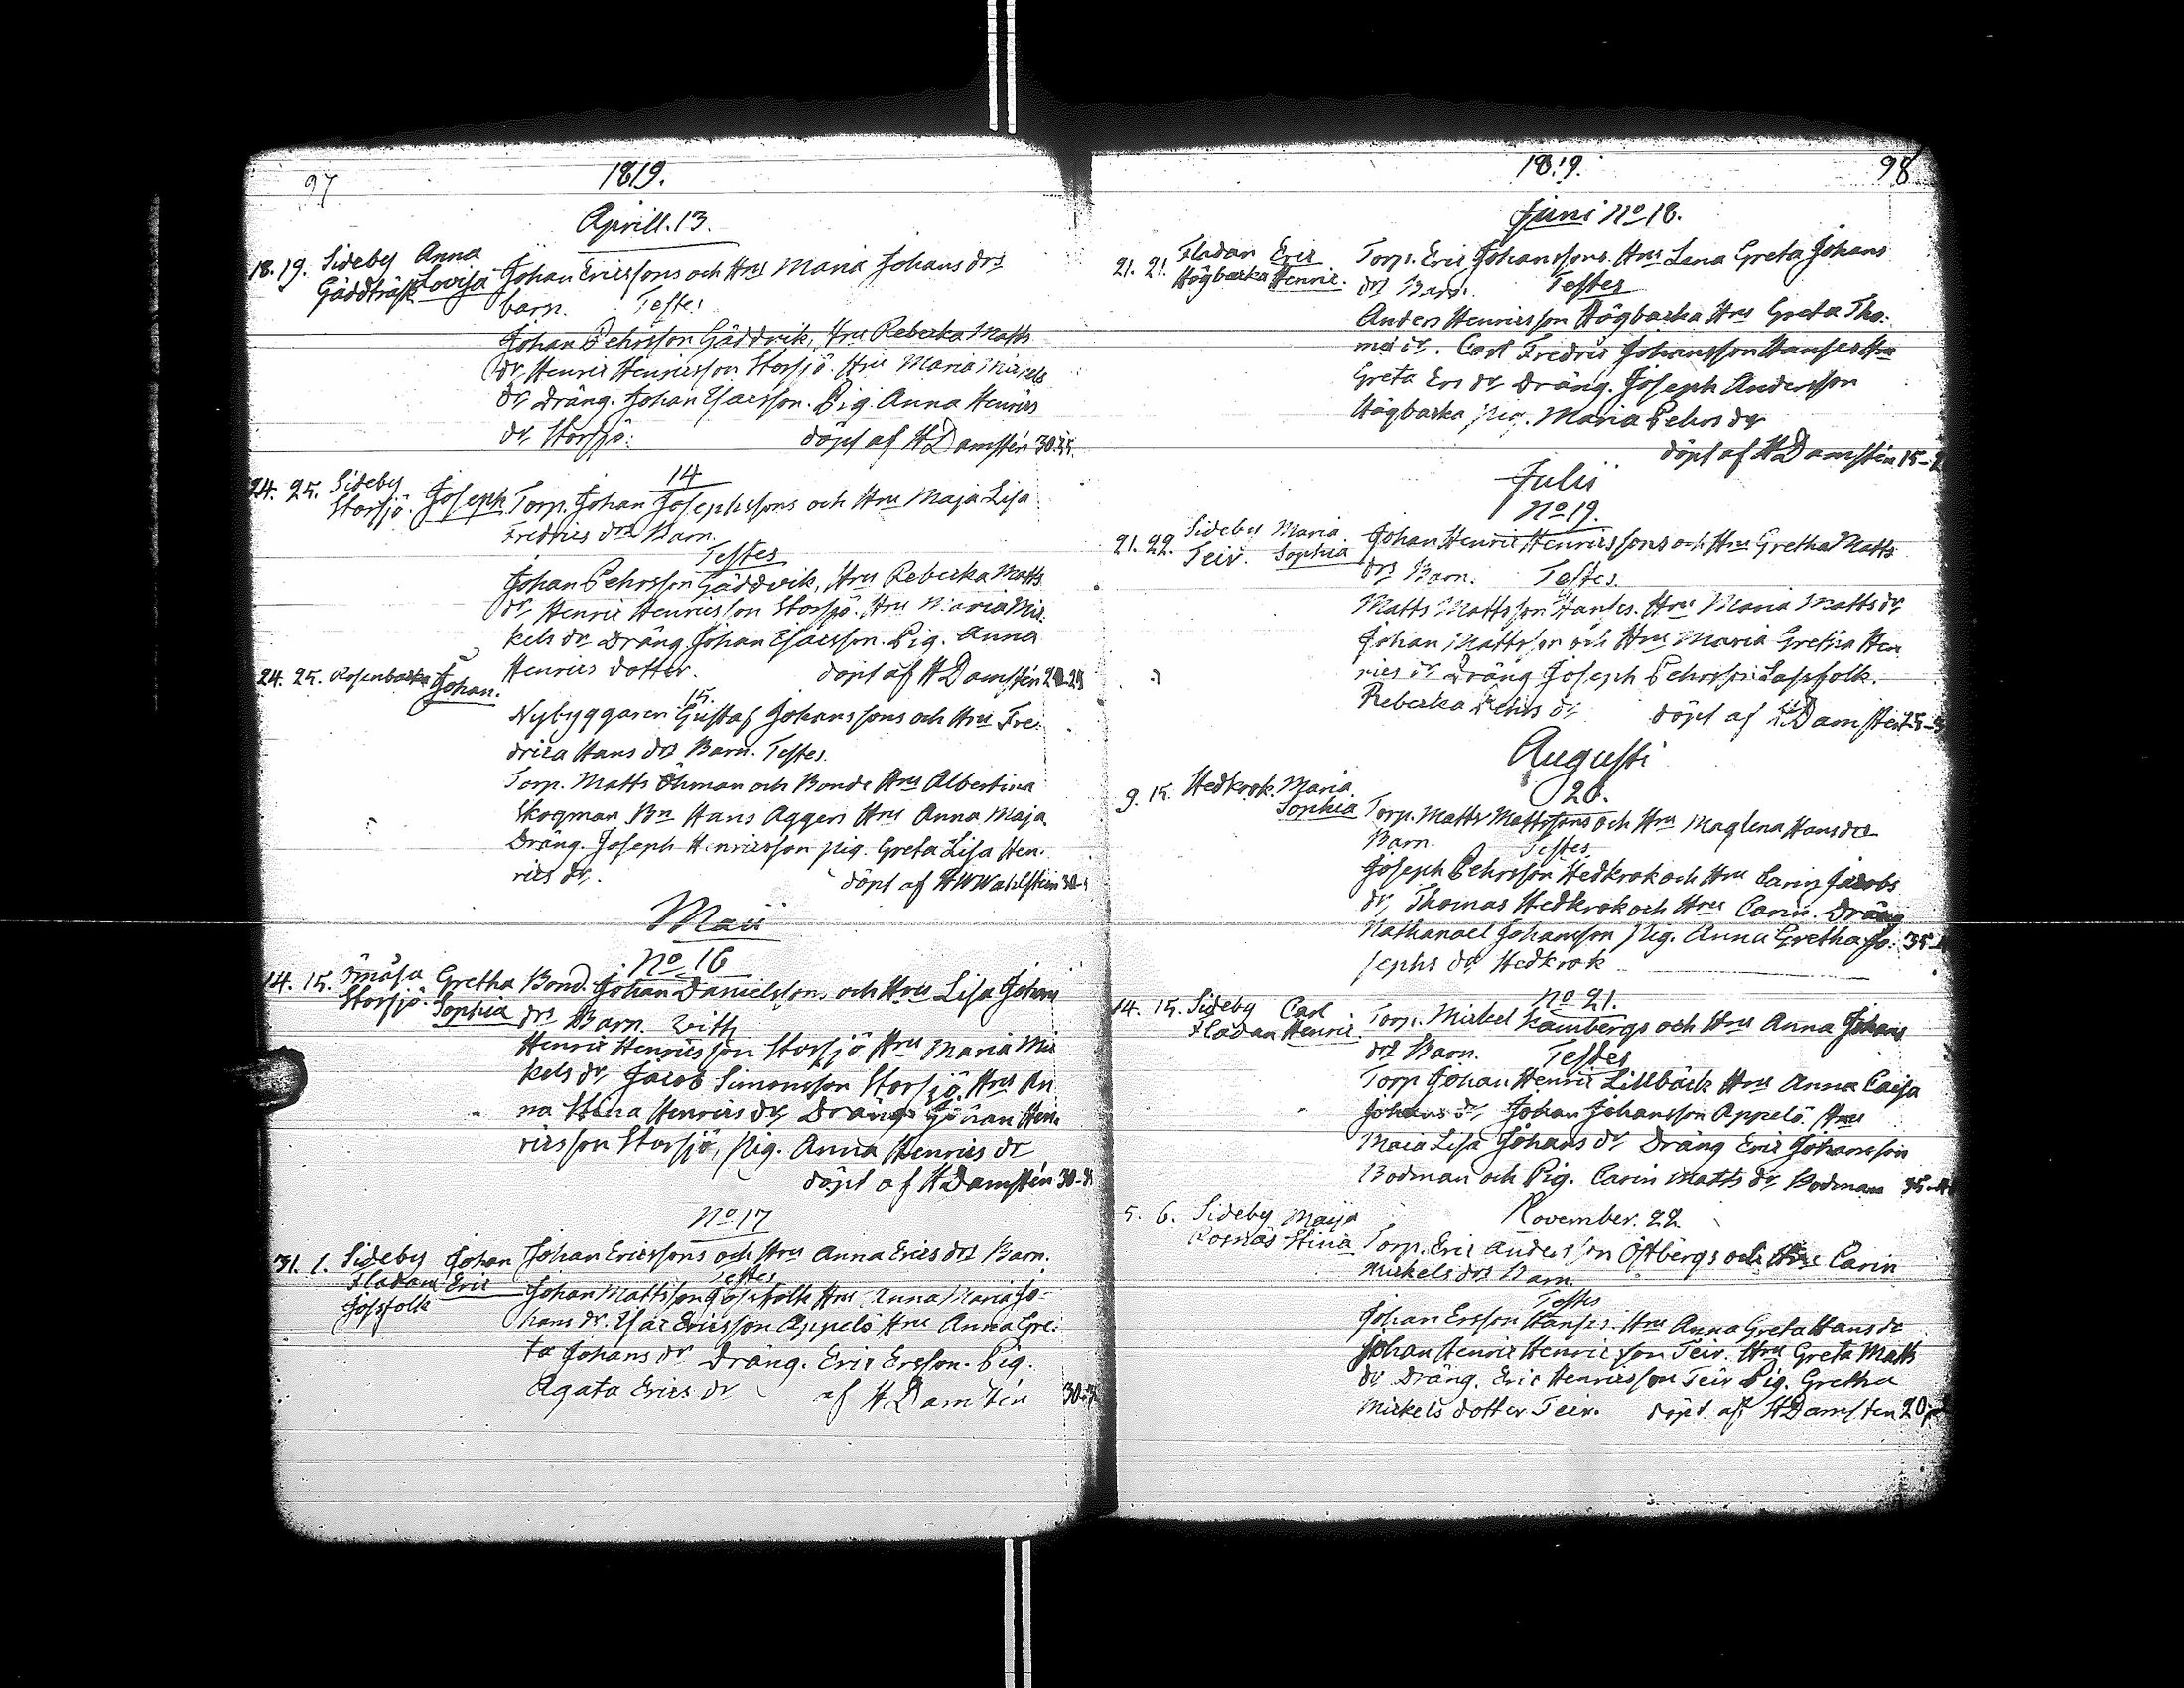 97
1819.
Aprill. 13.
18. 19. Sideby Anna
Gäddträsk Lovisa Johan Ericssons och Hru Maria Johans drs
barn. Testes
Johan Pehrsson Gäddvik, Hru Rebecka Matts
dr, Henric Henricsson Storsjö. Hru Maria Mickels
dr, Dräng. Johan Isacsson. Pig. Anna Henrics
dr, Storsjö. döpt af H Damstén 30.35.
14
24. 25. Sideby
Storsjö. Joseph Torp. Johan Josephssons och Hru Maja Lisa
Fredrics drs Barn.
Testes
Johan Pehrsson Gäddvik, Hru Rebecka Matts
dr, Henric Henricsson Storsjö. Hru Maria Mic
kels dr Dräng Johan Isacsson. Pig. Anna
Henrics dotter. döpt af H Damstén
24. 25. Rosenbacka Johan.
15.
Nybyggaren Gustaf Johanssons och Hru Fre-
drica Hans drs Barn. Testes.
Torp. Matts Öhman och Bonde Hru Albertina
Skogman Bn Hans Aggers Hru Anna Maja
Dräng. Joseph Henricsson pig. Greta Lisa Hen-
rics dr. döpt af HWWahlsten 30-
Maii
No 16
14. 15. Ömåsa Gretha Bond. Johan Danielssons och Hru Lisa Johans
Storsjö. Sophia drs Barn. Vith
Henric Henricsson Storsjö Hru Maria Mic
kels dr, Jacob Simonsson Storsjö, Hru An
na Stina Henrics dr, Dräng Johan Hen
ricsson Storsjö, pig. Anna Henrics dr
döpt af H Damstén 30-
No 17
31. 1. Sideby Johan Johan Ericssons och Hru Anna Erics drs Barn.
Fladan Eric Testes
Jossfolk Johan Mattsson Jossfolk Hru Anna Maria Jo-
hans dr. Isac Ericsson Appelö Hru Anna Gre-
ta Johans dr Dräng. Eric Ersson. Pig.
Agata Erics dr af H Damstén 30-
1819. 98
Juni No 18.
21. 21. Fladan Eric Torp. Eric Johanssons. Hru Lena Greta Johans
Högbacka Henric. drs Barn. Testes
Anders Henricsson Högbacka Hru Greta Tho-
mæ dr. Carl Fredric Johansson Hanses Hru
Greta Ers dr Dräng. Joseph Andersson
Högbacka pig. Maria Pehrs dr
döpt af H Damstén 15-
Julii
No 19.
21. 22. Sideby Maria Johan Henric Henricssons och Hru Gretha Matts
Teir. Sophia drs Barn. Testes.
Matts Mattsson Hanses. Hru Maria Matts dr,
Johan Mattsson och Hru Maria Gretha Hen
rics dr Dräng Joseph Pehrsson Lassfolk.
Rebecka Pehrs dr, döpt af H Damsten
Augusti
20.
9. 15. Hedkrok. Maria
Sophia Torp. Matts Mattssons och Hru Maglena Hans drs
Barn. Testes
Joseph Pehrsson Hedkrok och Hru Carin Jacobs
dr, Thomas Hedkrok och Hru Carin. Dräng
Nathanael Johansson pig. Anna Gretha Jo- 35-
sephs dr, Hedkrok
No 21.
14. 15. Sideby Carl Torp. Mickel Kambergs och Hru Anna Johans
Fladan Henric. drs Barn. Testes
Torp Johan Henric Lillbäck Hru Anna Caisa
Johans dr, Johan Johansson Appelö. Hru
Maia Lisa Johans dr Dräng Eric Johansson
Bodman och Pig. Carin Matts dr, Bodman 35-
November. 22.
5. 6. Sideby Maija
Rosnäs Stina Torp. Eric Andersson Östbergs och Hru Carin
Mickels drs Barn.
Testes
Johan Ersson Hanses. Hru Anna Greta Hans dr
Johan Henric Henricsson Teir. Hru Greta Matts
dr Dräng. Eric Henricsson Teir Pig. Gretha
Mickels dotter Teir. döpt af H Damsten 20